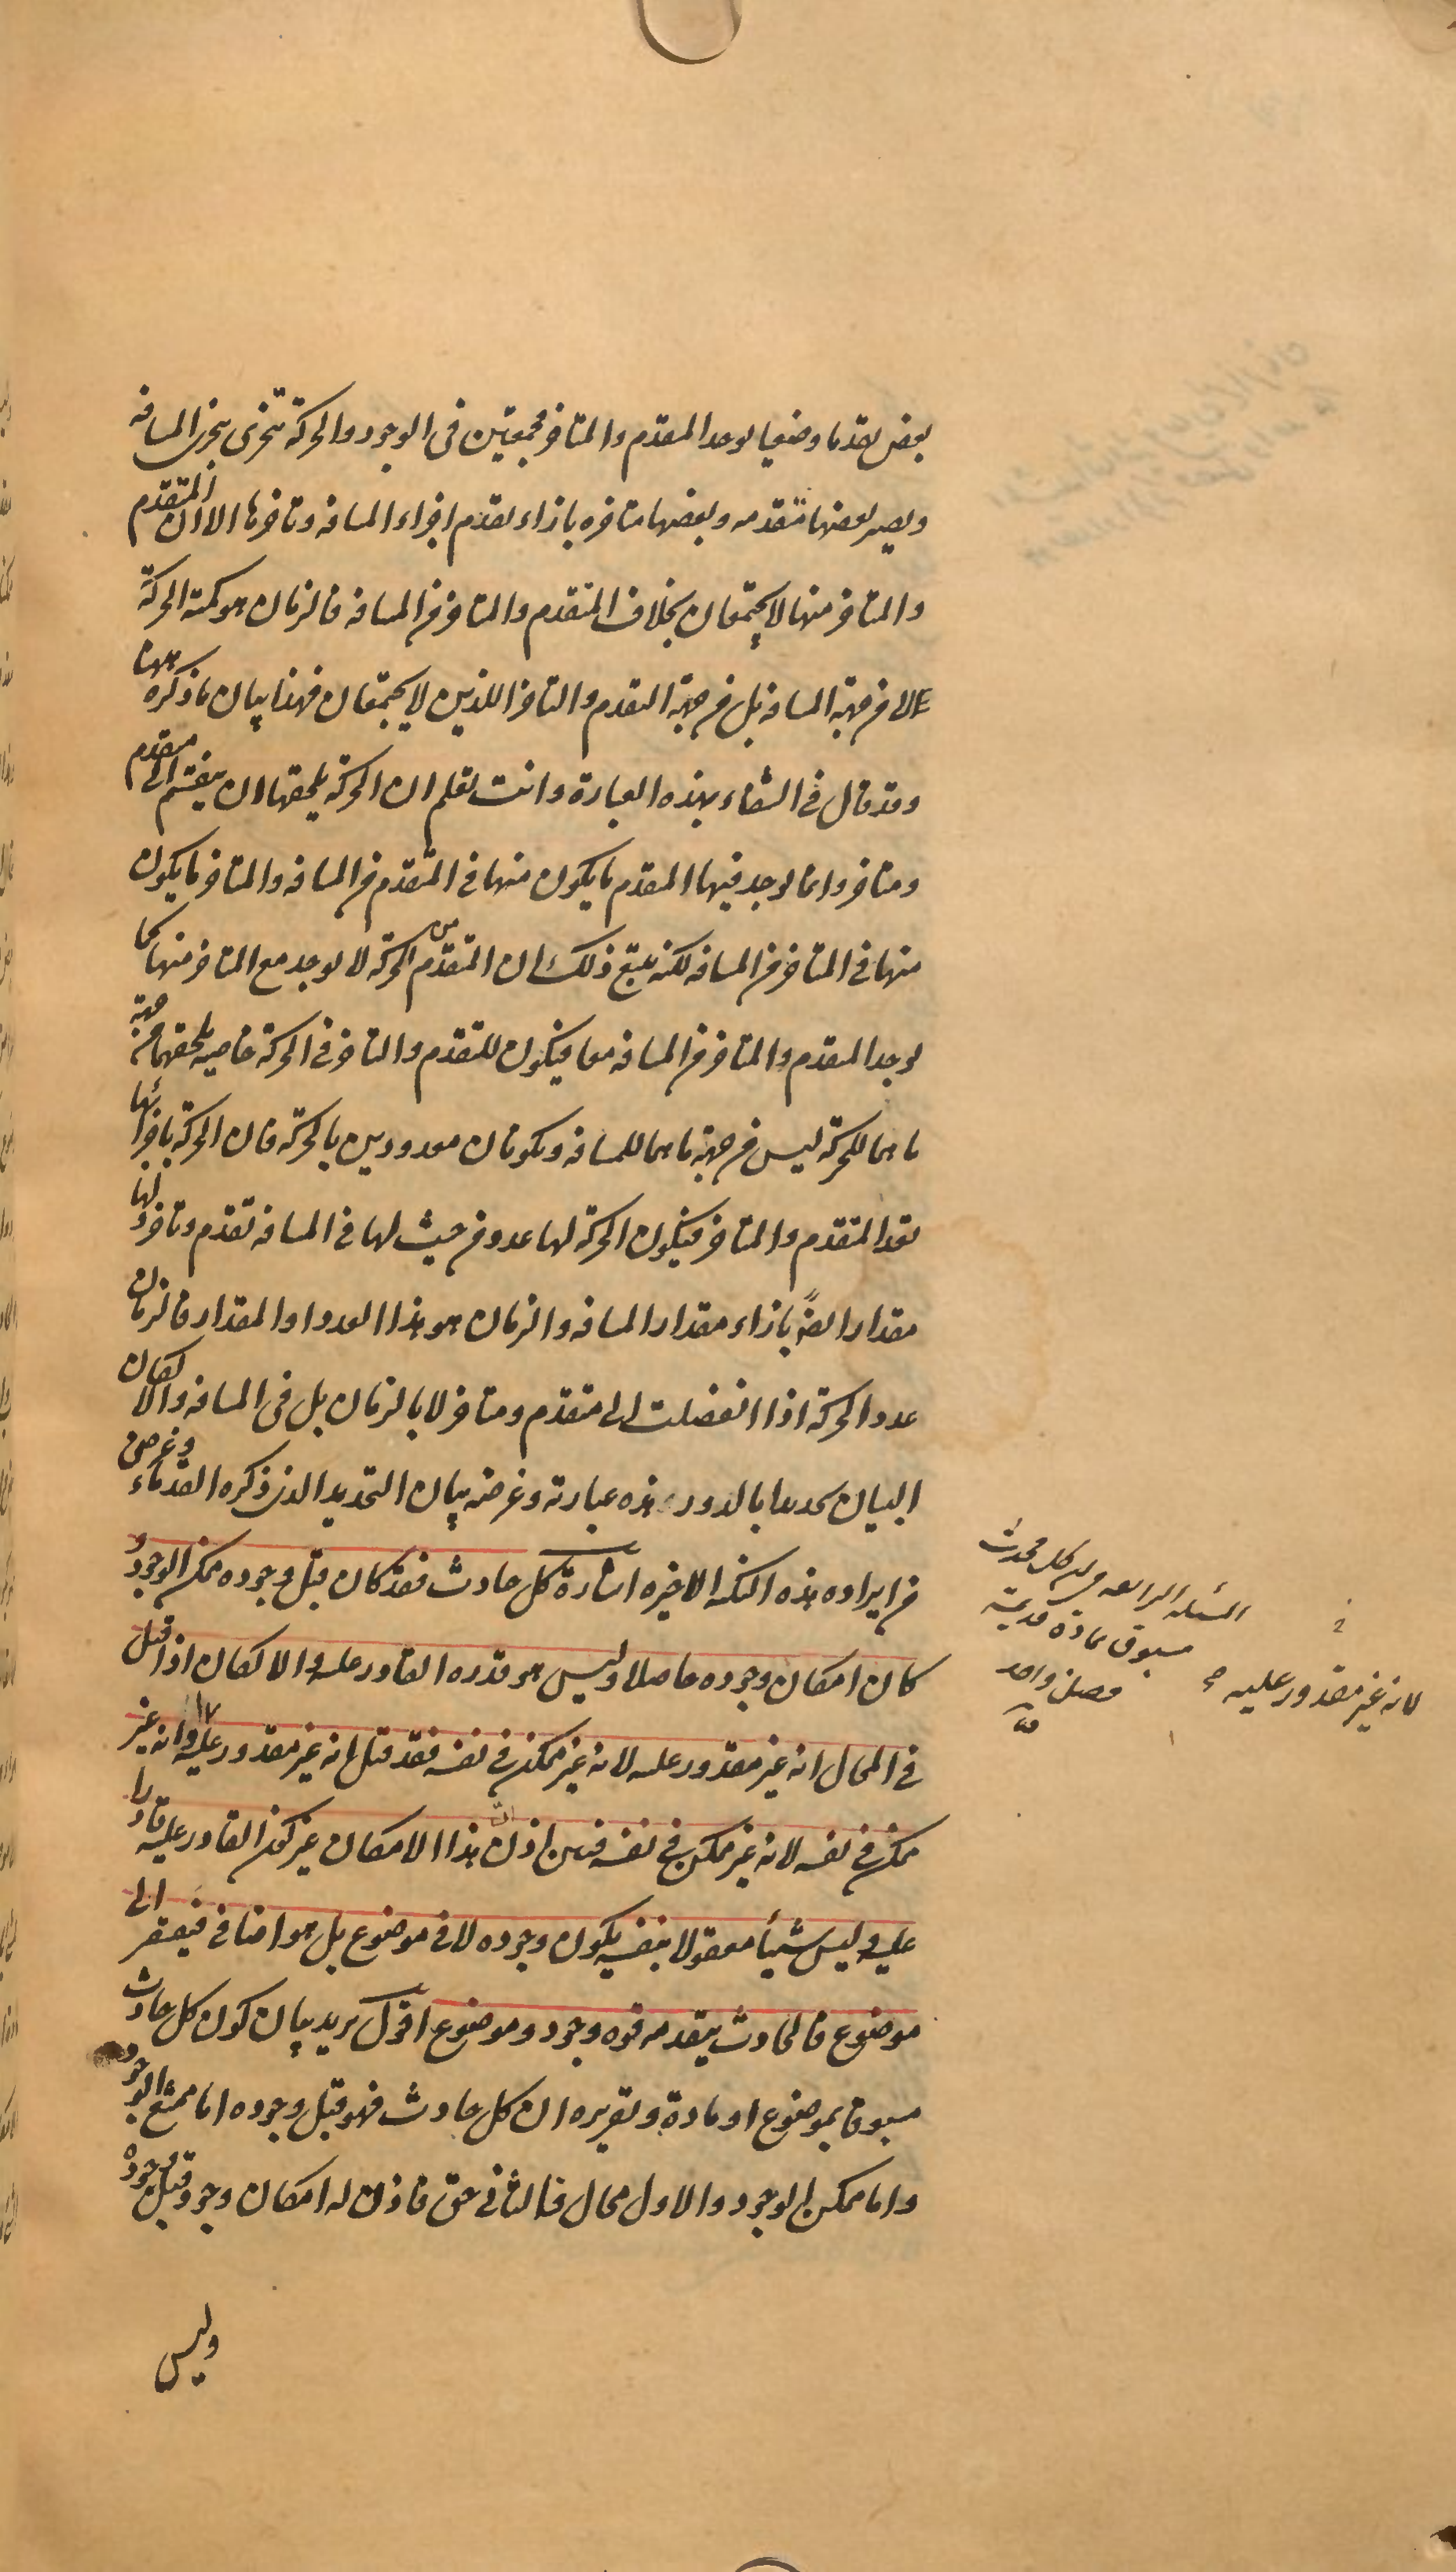 بعض تقدما وضعيا يوجد المتقدم والمتاخر مجتمعين فى الوجود والحركة تتجزى بتجزى المسافه
ويصير بعضها متقدمه وبعضها متاخره بازاء تقدم اجزاء المسافه وتاخرها الا ان المتقدم
والمتاخر منها لا يجتمعان بخلاف المتقدم والمتاخر من المسافه فالزمان هو كمية الحركة
لا من جهة المسافه بل من جهة التقدم والتاخر اللذين لا يجتمعان فهذا بيان ما ذكره ههنا
وقد قال فى الشفاء بهذه العبارة وانت تعلم ان الحركة يلحقها ان ينقسم الى متقدم
ومتاخر وانما يوجد فيها المتقدم ما يكون منها فى المتقدم من المسافه والمتاخر ما يكون
منها فى المتاخر من المسافه لكنه يتبع ذلك ان المتقدم من الحركة لا يوجد مع المتاخر منها كما
يوجد المتقدم والمتاخر من المسافه معا فيكون للتقدم والتاخر فى الحركة خاصيه يلحقهما من جهة
ما هما للحركة ليس من جهة ما هما للمسافه ويكونان معدودين بالحركة فان الحركة باجزائها
تعد المتقدم والمتاخر فيكون الحركة لها عدد من حيث لها فى المسافه تقدم وتاخر ولها
مقدار ايضاً بازاء مقدار المسافه والزمان هو هذا العدد او المقدار فالزمان
عدد الحركة اذا انفصلت الى متقدم ومتاخر لا بالزمان بل فى المسافه والا لكان
البيان تحديدا بالدور هذه عبارته وغرضه بيان التحديد الذى ذكره القدماء وغرضى
من ايراده هذه النكته الاخيره اشارة كل حادث فقد كان قبل وجوده ممكن الوجود و
كان امكان وجوده حاصلا وليس هو قدره القادر عليه والا لكان اذا قيل
فى المحال انه غير مقدور عليه لانه غير ممكن فى نفسه فقد قيل انه غير مقدور عليه وانه غير
ممكن فى نفسه لانه غير ممكن فى نفسه فبين اذن ان هذا الامكان غير كون القادر عليه قادرا
عليه وليس شيأ معقولا بنفسه يكون وجوده لا فى موضوع بل هو اضافى فيفتقر الى
موضوع فالحادث يتقدمه قوه وجود وموضوع اقول يريد بيان كون كل حادث
مسبوقا بموضوع او مادة وتقريره ان كل حادث فهو قبل وجوده اما ممتنع الوجود
واما ممكن الوجود والاول محال فالثانى حق فاذن له امكان وجود قبل وجوده
وليس
المسئله الرابعه فى ان كل محدث
مسبوق بمادة قديمة
فصل واحد
لانه غير مقدور عليه